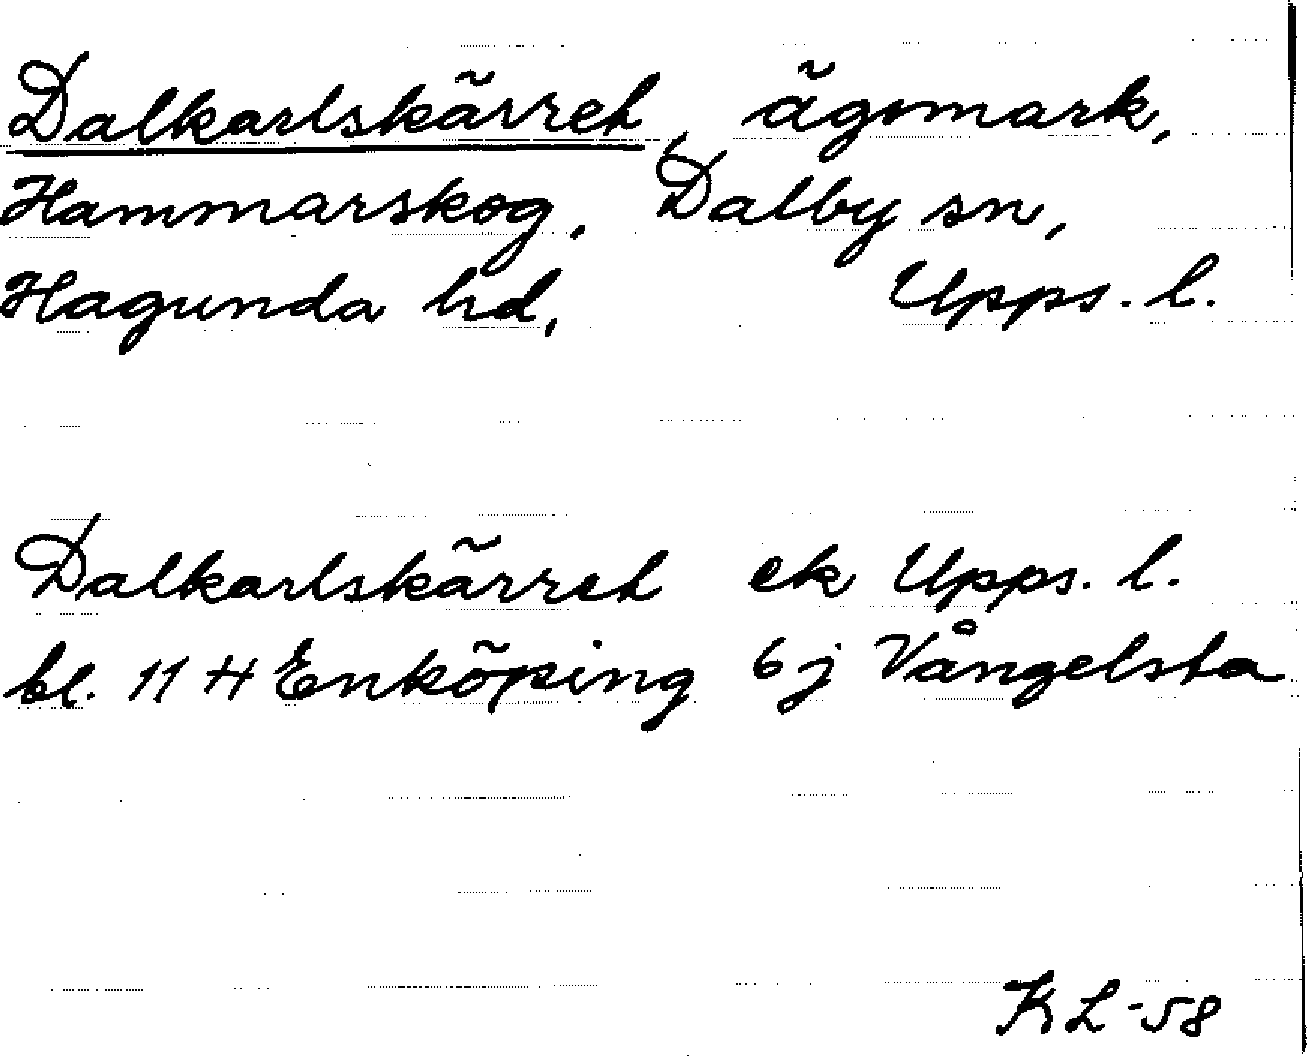 Dalkarlskärret, ägomark,
Hammarskog, Dalby sn,
Hagunda hd, Upps. l.
Dalkarlskärret ek Upps. l.
bl. 11 H Enköping 6 j Vångelsta
KL-58